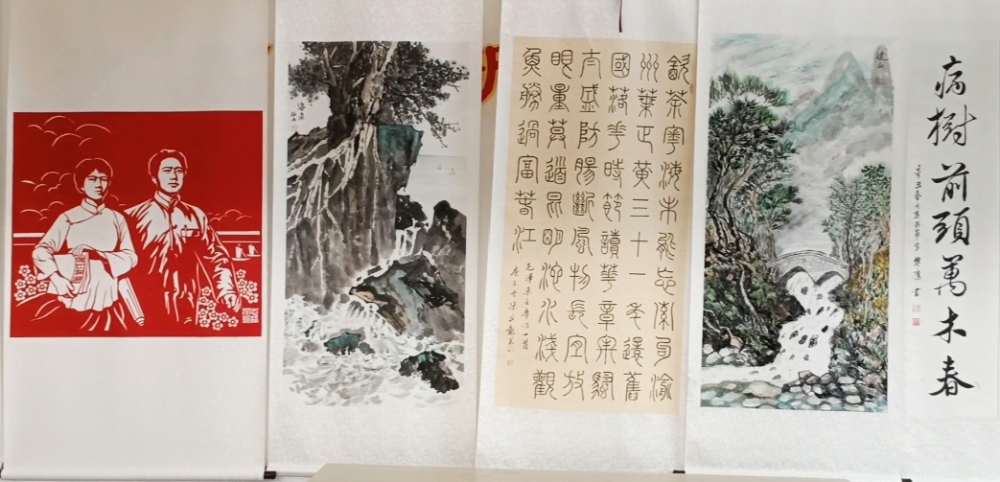 病樹前頭萬木春
飲茶粵海未能忘索句渝
州葉正黃三十一年還舊
國落花時節讀華章牢騷
太盛防腸斷風物長宜放
眼量莫道昆明池水淺觀
魚勝過富春江